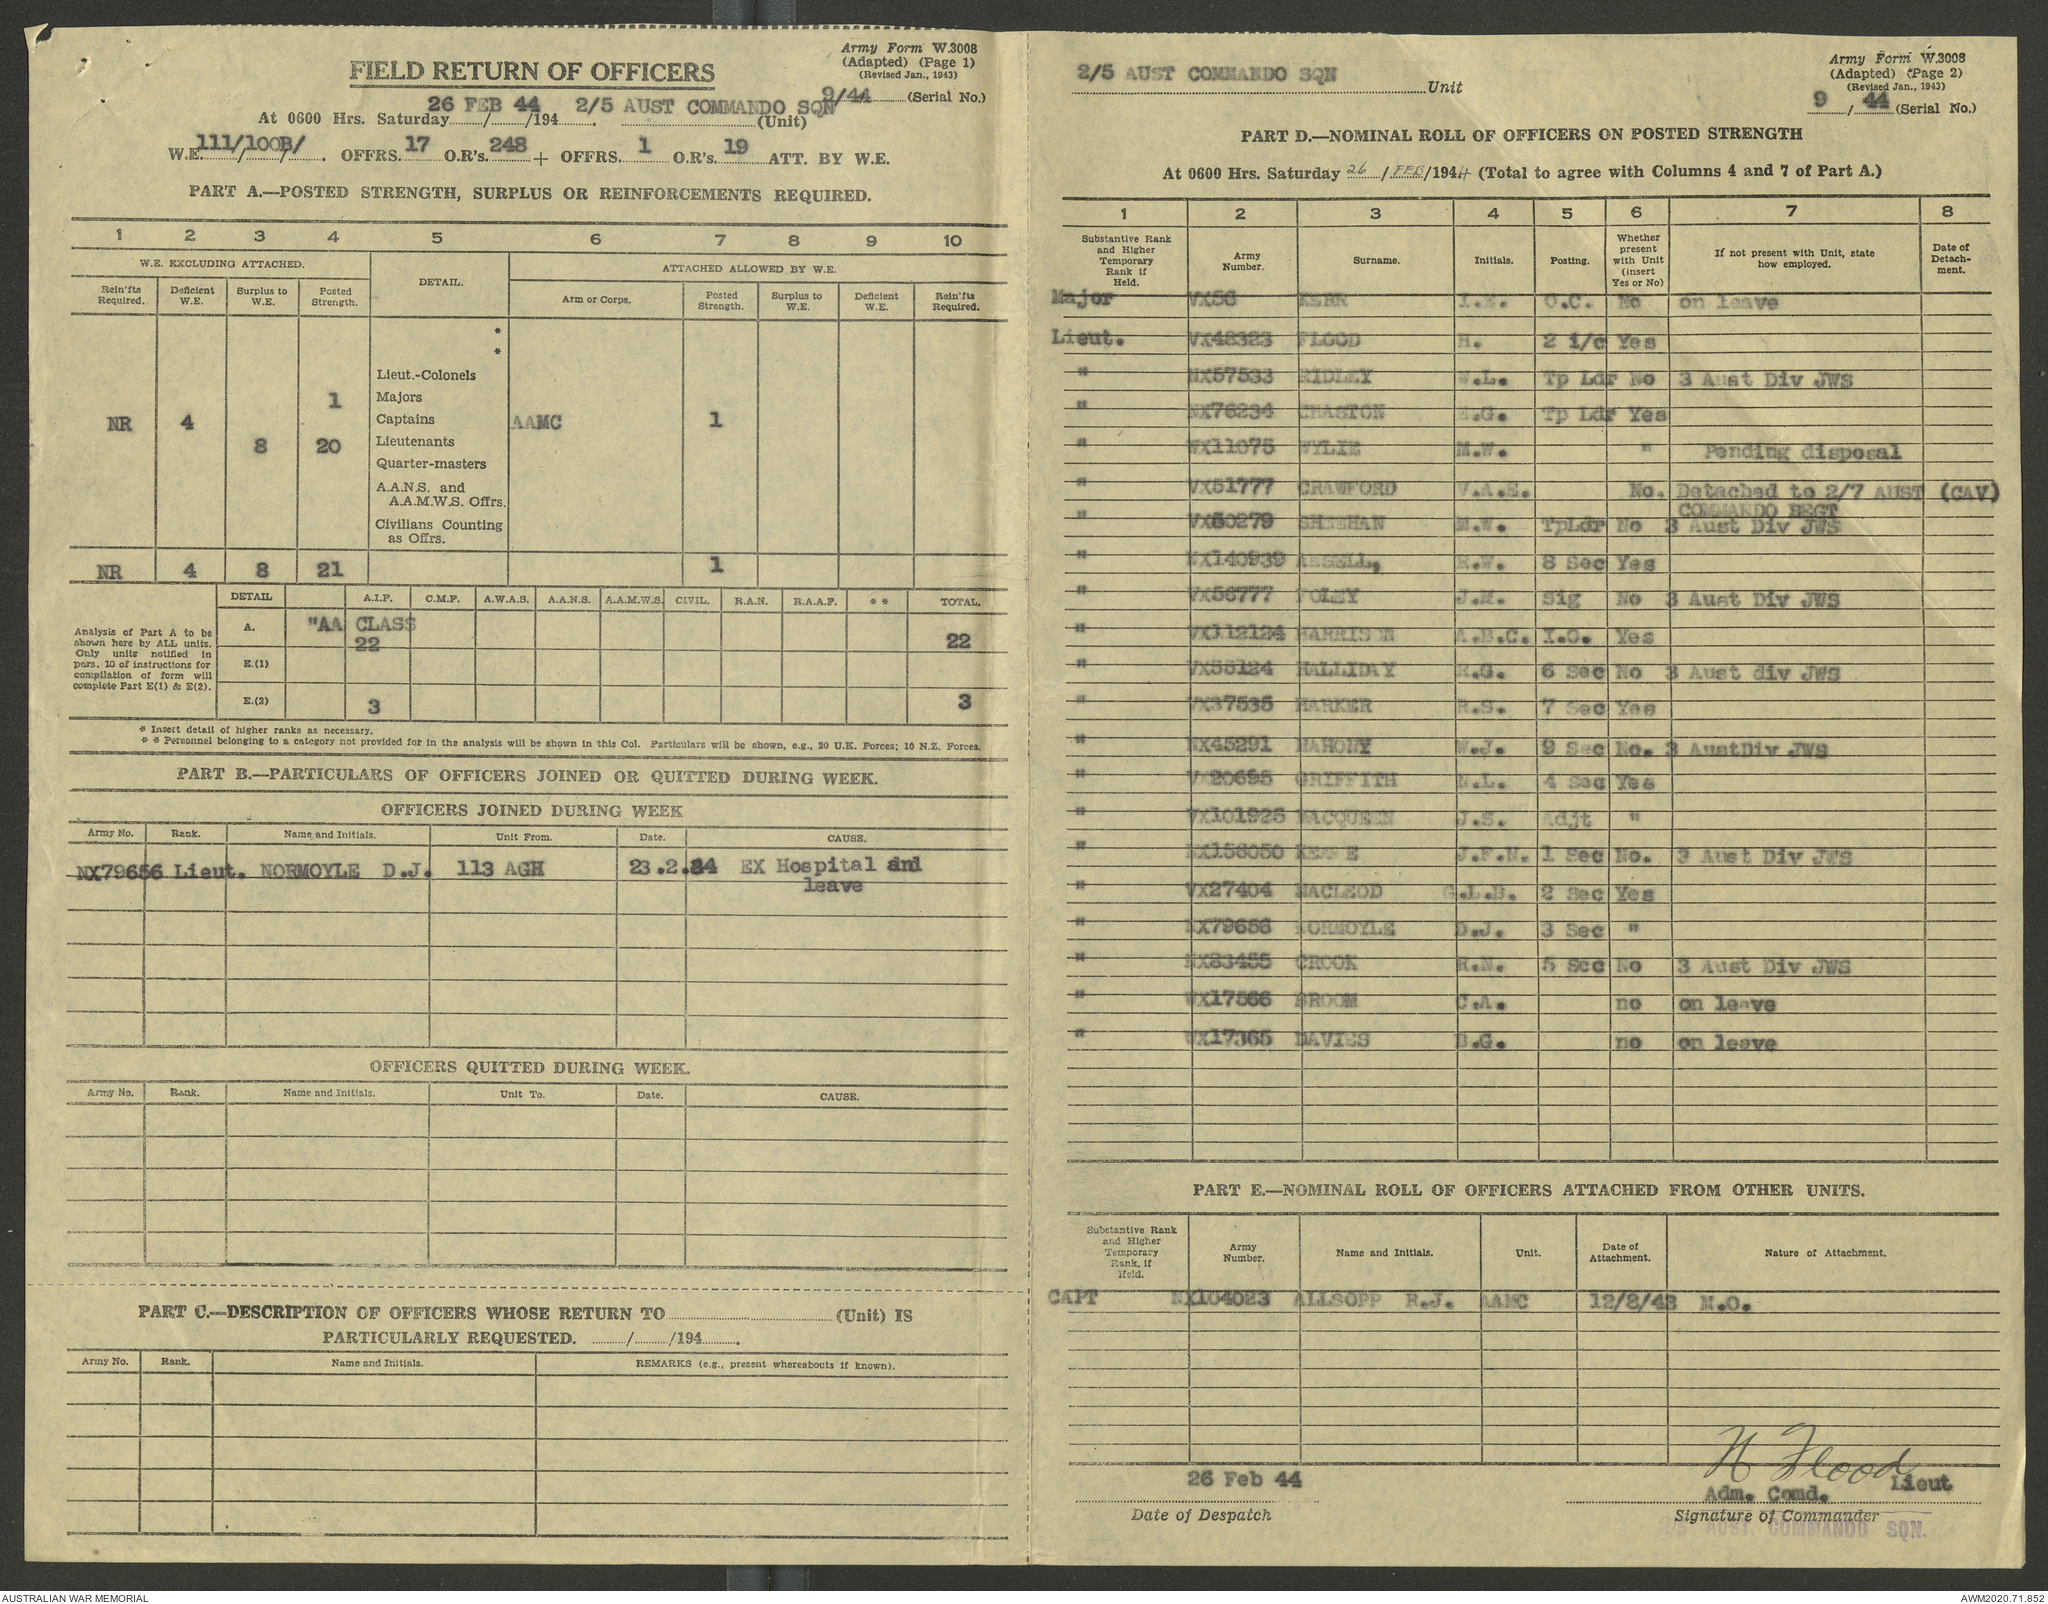 Army Form W.3008
(Adapted) (Page 1)
(Revised Jan., 1943)
FIELD RETURN OF OFFICERS
9/44 (Serial No.)
At 0600 Hrs. Saturday 26 FEB 44 /194 . 2/5 AUST COMMANDO SQN (Unit)
W.E. 111/100B/ . OFFRS. 17 O.R's. 248 + OFFRS. 1 O.R's. 19 ATT. BY W.E.
PART A.—POSTED STRENGTH, SURPLUS OR REINFORCEMENTS REQUIRED.
1 2 3 4 5 6 7 8 9 10
W.E. EXCLUDING ATTACHED. DETAIL. ATTACHED ALLOWED BY W.E.
Rein'fts Required. Deficient W.E. Surplus to W.E. Posted Strength. Arm or Corps. Posted Strength. Surplus to W.E. Deficient W.E. Rein'fts Required.
*
*
Lieut.-Colonels
1 Majors
NR 4 Captains AAMC 1
8 20 Lieutenants
Quarter-masters
A.A.N.S. and
A.A.M.W.S. Offrs.
Civilians Counting
as Offrs.
NR 4 8 21 1
DETAIL A.I.F. C.M.F. A.W.A.S. A.A.N.S. A.A.M.W.S. CIVIL. R.A.N. R.A.A.F. * * TOTAL.
Analysis of Part A to be
shown here by ALL units.
Only units notified in
para. 10 of instructions for
compilation of form will
complete Part E(1) & E(2).
A. "AA CLASS
22 22
E.(1)
E.(2) 3 3
* Insert detail of higher ranks as necessary.
* * Personnel belonging to a category not provided for in the analysis will be shown in this Col. Particulars will be shown, e.g., 20 U.K. Forces; 10 N.Z. Forces.
PART B.—PARTICULARS OF OFFICERS JOINED OR QUITTED DURING WEEK.
OFFICERS JOINED DURING WEEK
Army No. Rank. Name and Initials. Unit From. Date. CAUSE.
NX79656 Lieut. NORMOYLE D.J. 113 AGH 23.2.44 EX Hospital and
leave
OFFICERS QUITTED DURING WEEK.
Army No. Rank. Name and Initials. Unit To. Date. CAUSE.
PART C.—DESCRIPTION OF OFFICERS WHOSE RETURN TO (Unit) IS
PARTICULARLY REQUESTED. / /194 .
Army No. Rank. Name and Initials. REMARKS (e.g., present whereabouts if known).
Army Form W.3008
(Adapted) (Page 2)
(Revised Jan., 1943)
2/5 AUST COMMANDO SQN Unit
9 / 44 (Serial No.)
PART D.—NOMINAL ROLL OF OFFICERS ON POSTED STRENGTH
At 0600 Hrs. Saturday 26 / FEB /1944 (Total to agree with Columns 4 and 7 of Part A.)
1 2 3 4 5 6 7 8
Substantive Rank and Higher Temporary Rank if Held. Army Number. Surname. Initials. Posting. Whether present with Unit (insert Yes or No) If not present with Unit, state how employed. Date of Detach-ment.
Major VX56 KERR I.E. O.C. No on leave
Lieut. VX48323 FLOOD H. 2 i/c Yes
" NX57533 RIDLEY W.L. Tp Ldr No 3 Aust Div JWS
" NX76234 CHASTON E.G. Tp Ldr Yes
" WX11075 WYLIE M.W. " Pending disposal
" VX51777 CRAWFORD V.A.E. No. Detached to 2/7 AUST (CAV)
COMMANDO REGT
" VX80279 SHEEHAN M.W. TpLdr No 3 Aust Div JWS
" NX140939 ANSELL, R.W. 8 Sec Yes
" VX56777 FOLEY J.M. Sig No 3 Aust Div JWS
" VX112124 HARRISON A.B.C. I.O. Yes
" VX55124 HALLIDAY R.G. 6 Sec No 3 Aust div JWS
" VX37535 HARKER R.S. 7 Sec Yes
" NX45291 MAHONY W.J. 9 Sec No. 3 AustDiv JWS
" VX20695 GRIFFITH N.L. 4 Sec Yes
" VX101926 MACQUEEN J.S. Adjt "
" NX156050 KEANE J.F.N. 1 Sec No. 3 Aust Div JWS
" VX27404 MACLEOD G.L.B. 2 Sec Yes
" NX79656 NORMOYLE D.J. 3 Sec "
" NX83455 CROOK R.N. 5 Sec No 3 Aust Div JWS
" WX17566 BROOM C.A. no on leave
" WX17365 DAVIES B.G. no on leave
PART E.—NOMINAL ROLL OF OFFICERS ATTACHED FROM OTHER UNITS.
Substantive Rank and Higher Temporary Rank, if Held. Army Number. Name and Initials. Unit. Date of Attachment. Nature of Attachment.
CAPT NX104023 ALLSOPP R.J. AAMC 12/8/43 M.O.
H Flood
26 Feb 44 Adm. Comd. Lieut
Date of Despatch Signature of Commander
AUST. COMMANDO SQN.
AUSTRALIAN WAR MEMORIAL AWM2020.71.852